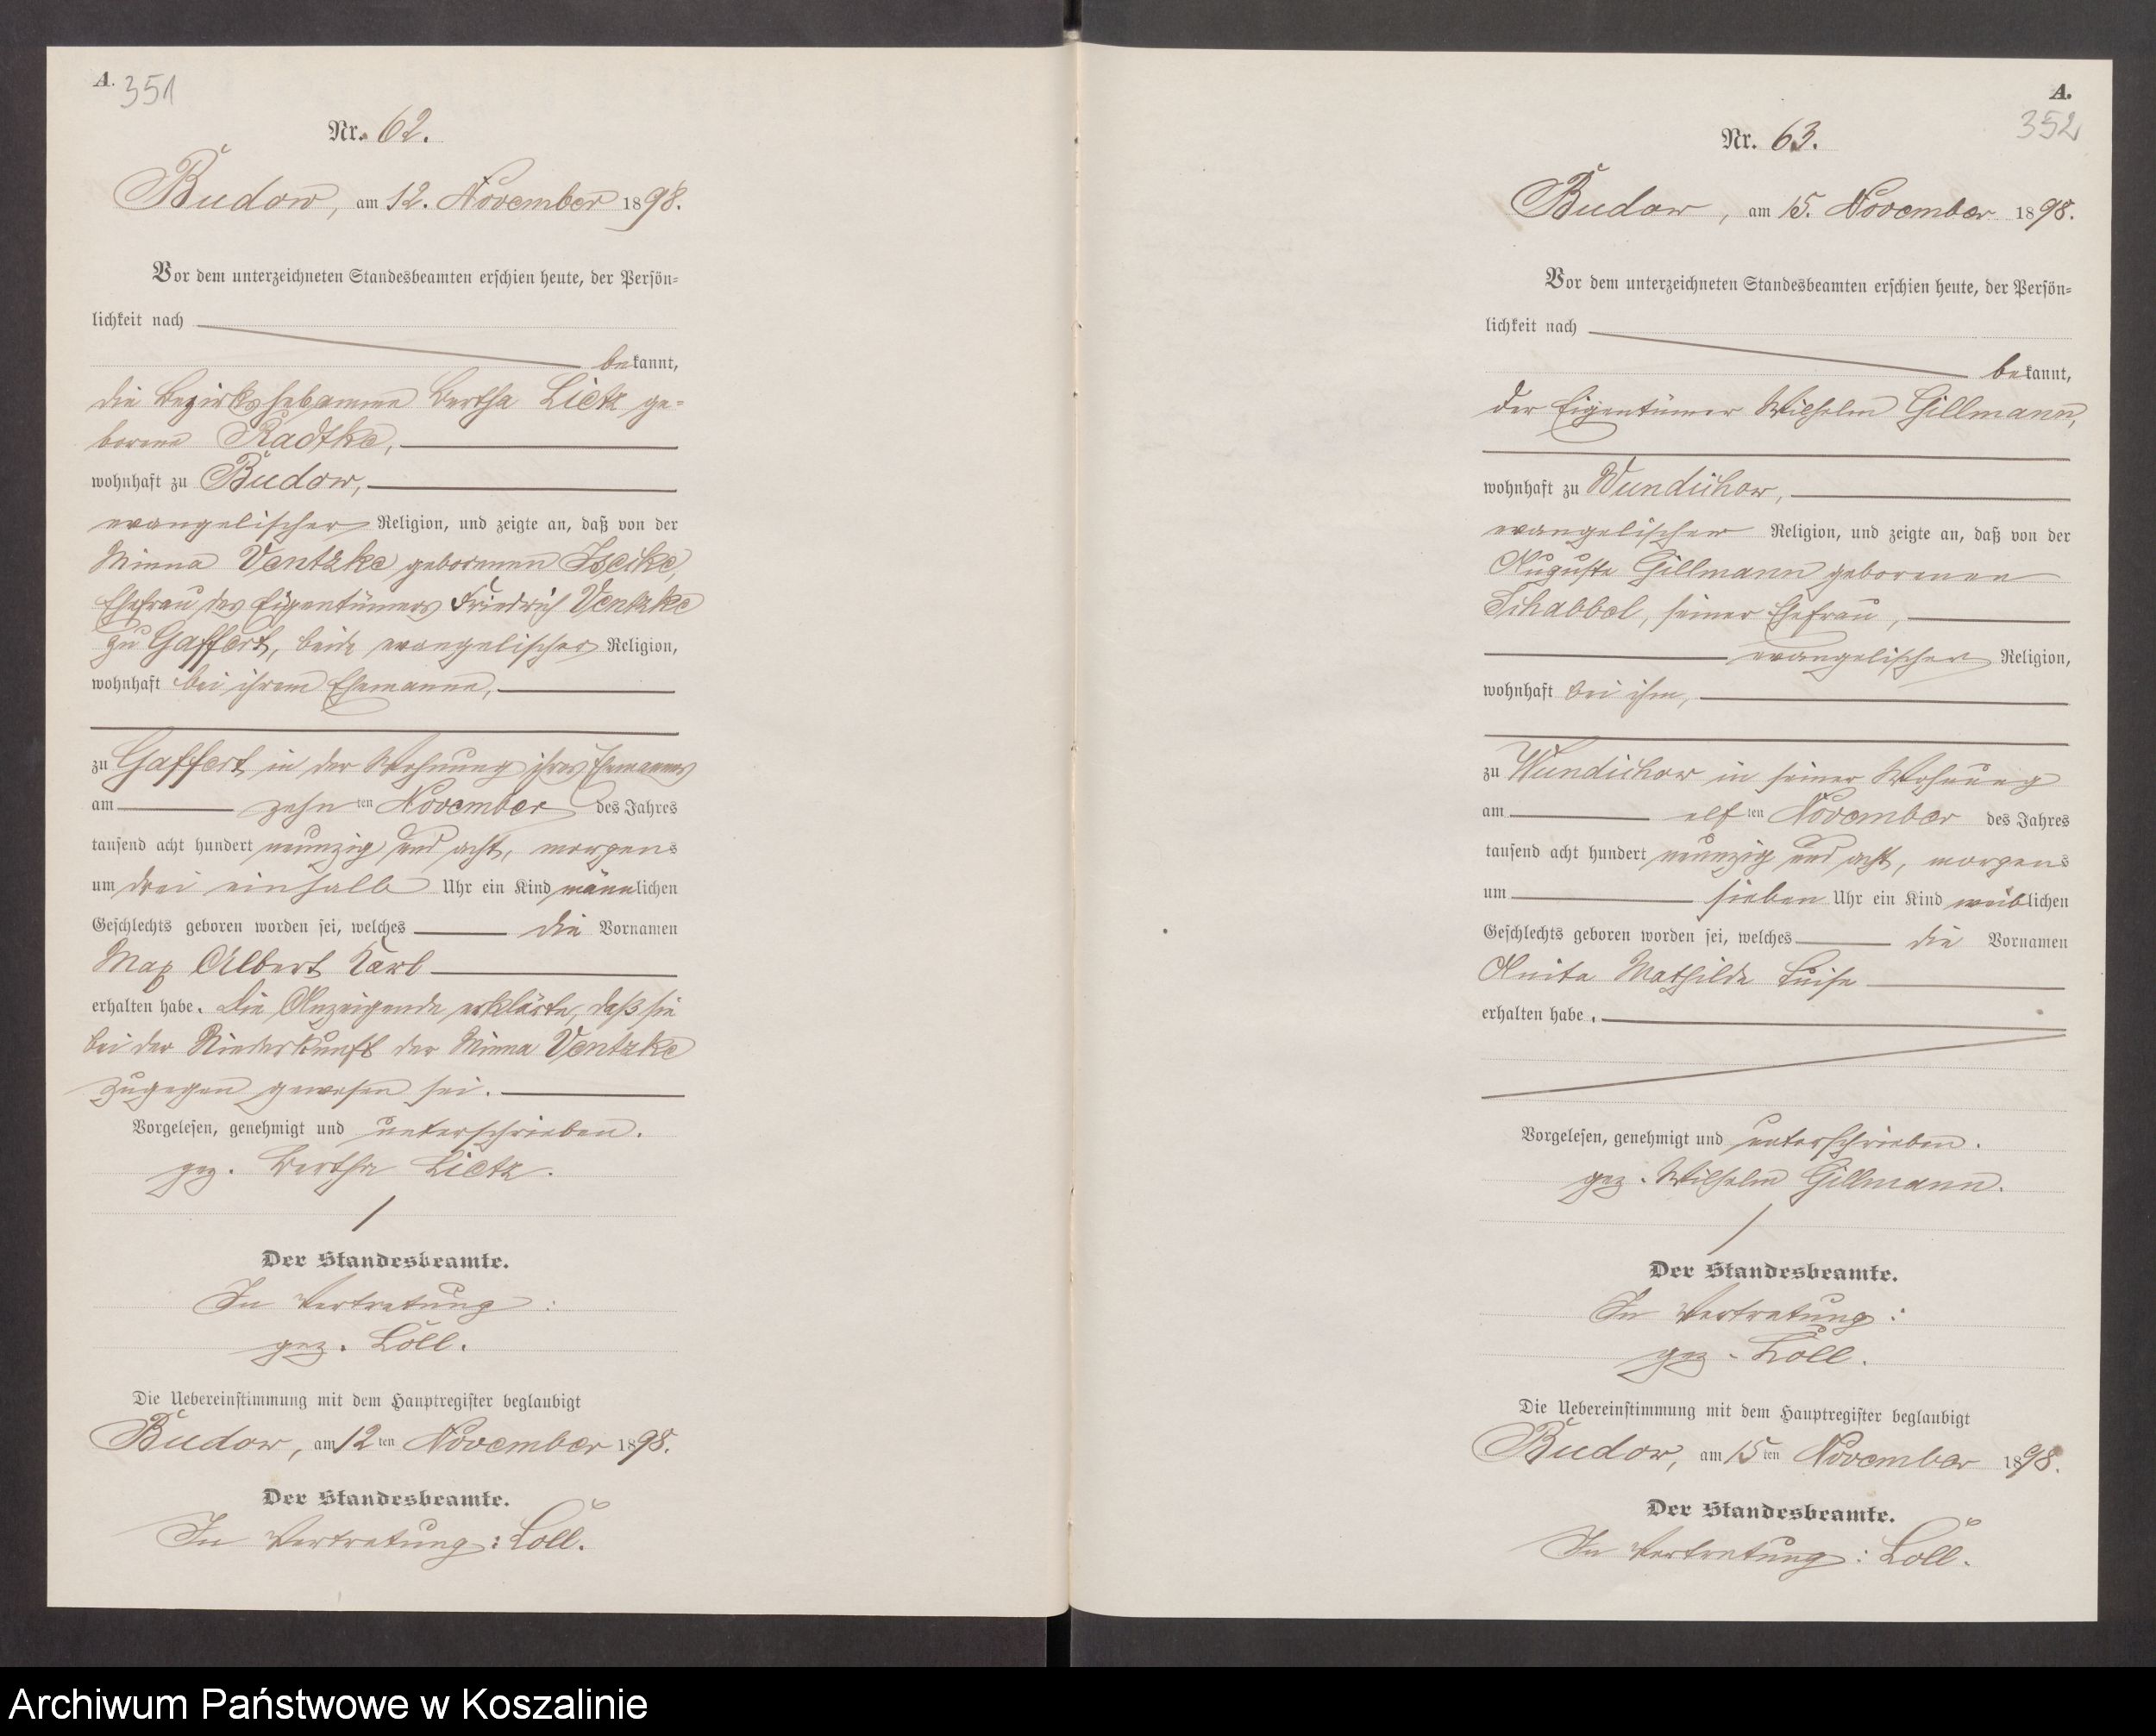 A.
351
Nr. 62.
Budow, am 12. November 1898.
Vor dem unterzeichneten Standesbeamten erschien heute, der Persön=
lichkeit nach
bekannt,
die Bezirkshebamme Bertha Lietz ge=
borene Radtke,
wohnhaft zu Budow,
evangelischer Religion, und zeigte an, daß von der
Minna Ventzke geborenen Iseike,
Ehefrau des Eigentümers Friedrich Ventzke
zu Gaffert, beide evangelischer Religion,
wohnhaft bei ihrem Ehemanne,
zu Gaffert in der Wohnung ihres Ehemannes
am zehnten November des Jahres
tausend acht hundert neunzig und acht, morgens
um drei einhalb Uhr ein Kind männlichen
Geschlechts geboren worden sei, welches die Vornamen
Max Albert Karl
erhalten habe. Die Anzeigende erklärte, daß sie
bei der Niederkunft der Minna Ventzke
zugegen gewesen sei.
Vorgelesen, genehmigt und unterschrieben.
gez. Bertha Lietz.
Der Standesbeamte.
In Vertretung:
gez. Löll.
Die Uebereinstimmung mit dem Hauptregister beglaubigt
Budow, am 12ten November 1898.
Der Standesbeamte.
In Vertretung: Löll.
A.
352
Nr. 63.
Budow, am 15. November 1898.
Vor dem unterzeichneten Standesbeamten erschien heute, der Persön=
lichkeit nach
bekannt,
der Eigentümer Wilhelm Gillmann,
wohnhaft zu Wundichow,
evangelischer Religion, und zeigte an, daß von der
Auguste Gillmann geborenen
Schabbel, seiner Ehefrau,
evangelischer Religion,
wohnhaft bei ihm,
zu Wundichow in seiner Wohnung
am elften November des Jahres
tausend acht hundert neunzig und acht, morgens
um sieben Uhr ein Kind weiblichen
Geschlechts geboren worden sei, welches die Vornamen
Anita Mathilde Luise
erhalten habe.
Vorgelesen, genehmigt und unterschrieben.
gez. Wilhelm Gillmann.
Der Standesbeamte.
In Vertretung:
gez. Löll.
Die Uebereinstimmung mit dem Hauptregister beglaubigt
Budow, am 15ten November 1898.
Der Standesbeamte.
In Vertretung: Löll.
Archiwum Państwowe w Koszalinie